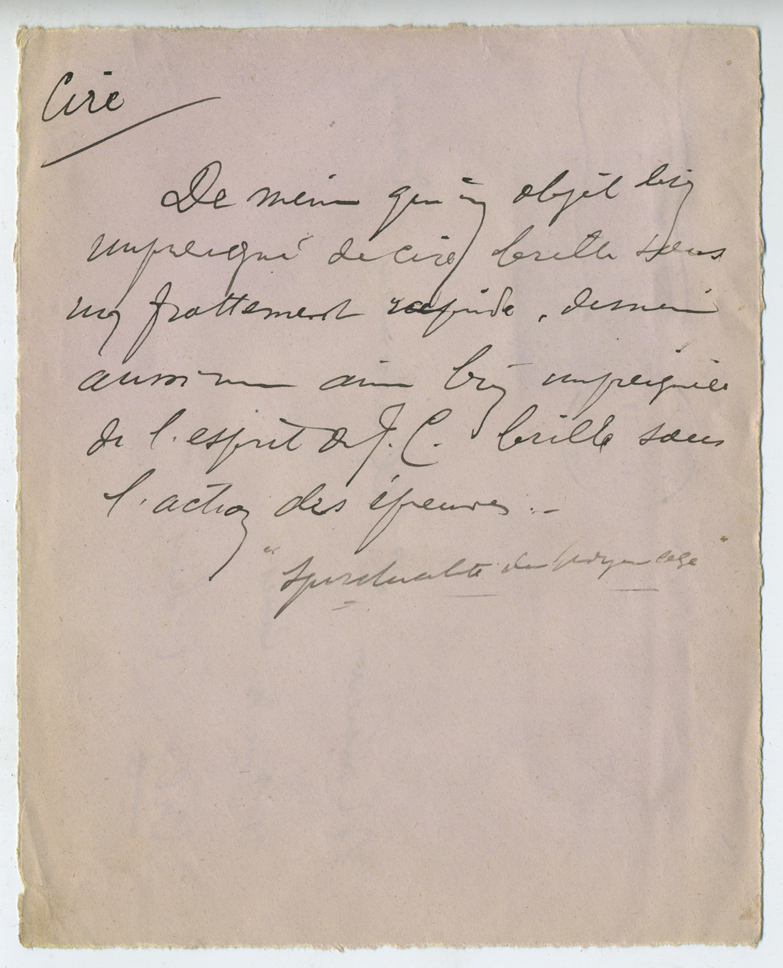 Cire
De même qu'un objet bien
impreigné de cire brille sous
un frottement rapide, de même
aussi une âme bien impreignée
de l'esprit de J. C. brille sous
l'action des épreuves. -
"Spiritualité du Moyen age"